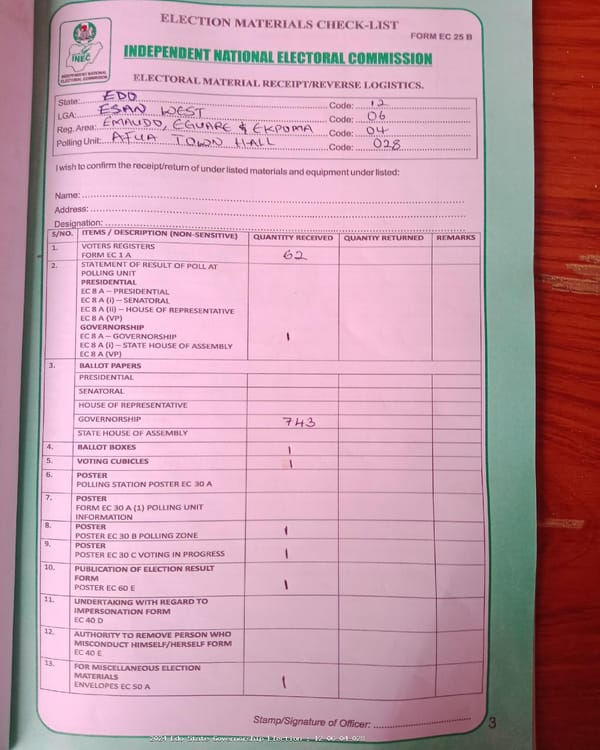 ELECTION MATERIALS CHECK-LIST
FORM EC 25 B
INEC
INDEPENDENT NATIONAL ELECTORAL COMMISSION
INDEPENDENT NATIONAL ELECTORAL COMMISSION
ELECTORAL MATERIAL RECEIPT/REVERSE LOGISTICS.
State: EDO Code: 12
LGA: ESAN WEST Code: 06
Reg. Area: EMAUDO, EGUARE & EKPOMA Code: 04
Polling Unit: AFUA TOWN HALL Code: 028
I wish to confirm the receipt/return of under listed materials and equipment under listed:
Name:
Address:
Designation:
S/NO. ITEMS / DESCRIPTION (NON-SENSITIVE) QUANTITY RECEIVED QUANTIY RETURNED REMARKS
1. VOTERS REGISTERS
FORM EC 1 A 62
2. STATEMENT OF RESULT OF POLL AT
POLLING UNIT
PRESIDENTIAL
EC 8 A – PRESIDENTIAL
EC 8 A (i) – SENATORAL
EC 8 A (ii) – HOUSE OF REPRESENTATIVE
EC 8 A (VP)
GOVERNORSHIP
EC 8 A – GOVERNORSHIP 1
EC 8 A (i) – STATE HOUSE OF ASSEMBLY
EC 8 A (VP)
3. BALLOT PAPERS
PRESIDENTIAL
SENATORAL
HOUSE OF REPRESENTATIVE
GOVERNORSHIP 743
STATE HOUSE OF ASSEMBLY
4. BALLOT BOXES 1
5. VOTING CUBICLES 1
6. POSTER
POLLING STATION POSTER EC 30 A
7. POSTER
FORM EC 30 A (1) POLLING UNIT
INFORMATION
8. POSTER
POSTER EC 30 B POLLING ZONE 1
9. POSTER
POSTER EC 30 C VOTING IN PROGRESS 1
10. PUBLICATION OF ELECTION RESULT
FORM
POSTER EC 60 E 1
11. UNDERTAKING WITH REGARD TO
IMPERSONATION FORM
EC 40 D
12. AUTHORITY TO REMOVE PERSON WHO
MISCONDUCT HIMSELF/HERSELF FORM
EC 40 E
13. FOR MISCELLANEOUS ELECTION
MATERIALS
ENVELOPES EC 50 A 1
Stamp/Signature of Officer:
3
2024 Edo State Governorship Election - 12-06-04-028